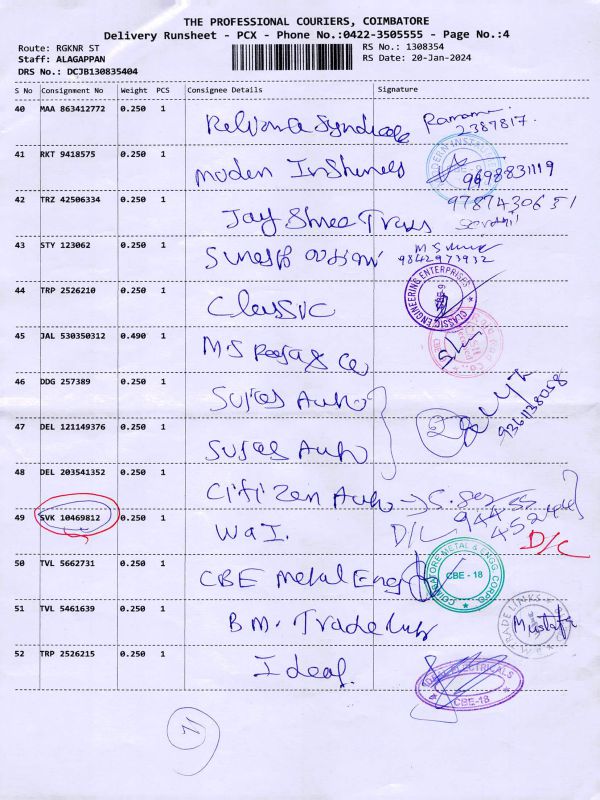 THE PROFESSIONAL COURIERS, COIMBATORE
Delivery Runsheet - PCX - Phone No.:0422-3505555 - Page No.:4
Route: RGKNR ST
RS No.: 1308354
Staff: ALAGAPPAN
RS Date: 20-Jan-2024
DRS No.: DCJB130835404
S No Consignment No Weight PCS Consignee Details Signature
40 MAA 863412772 0.250 1
2389817.
41 RKT 9418575 0.250 1
9498831119
42 TRZ 42506334 0.250 1 Jay Shree
9787430651
43 STY 123062 0.250 1
9842973932
44 TRP 2526210 0.250 1 Classic
CLASSIC ENGINEERING ENTERPRISES
45 JAL 530350312 0.490 1 M.S
46 DDG 257389 0.250 1 Auto
47 DEL 121149376 0.250 1 Auto
9361138058
48 DEL 203541352 0.250 1 Citizen Auto
94455
45244
49 SVK 10469812 0.250 1 WaI. D/C
D/C
50 TVL 5662731 0.250 1 CBE Metal Engg
COIMBATORE METAL & ENGG CORPO.
CBE - 18
51 TVL 5461639 0.250 1 B.M. Trade Links
TRADE LINKS
Mustafa
52 TRP 2526215 0.250 1 Ideal.
CBE-18